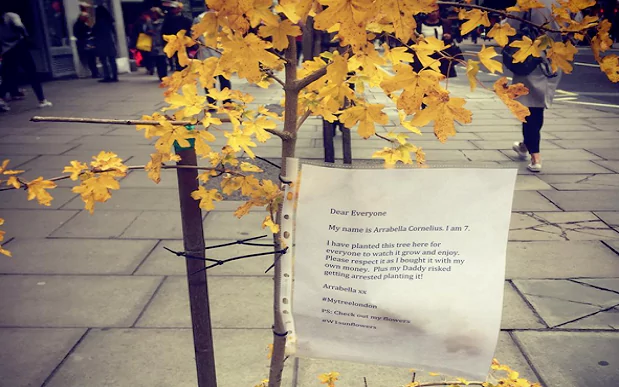 Dear Everyone
My name is Arrabella Cornelius. I am 7.
I have planted this tree here for
everyone to watch it grow and enjoy.
Please respect it as I bought it with my
own money. Plus my Daddy risked
getting arrested planting it!
Arrabella xx
#Mytreelondon
PS: Check out my flowers
#W1sunflowers